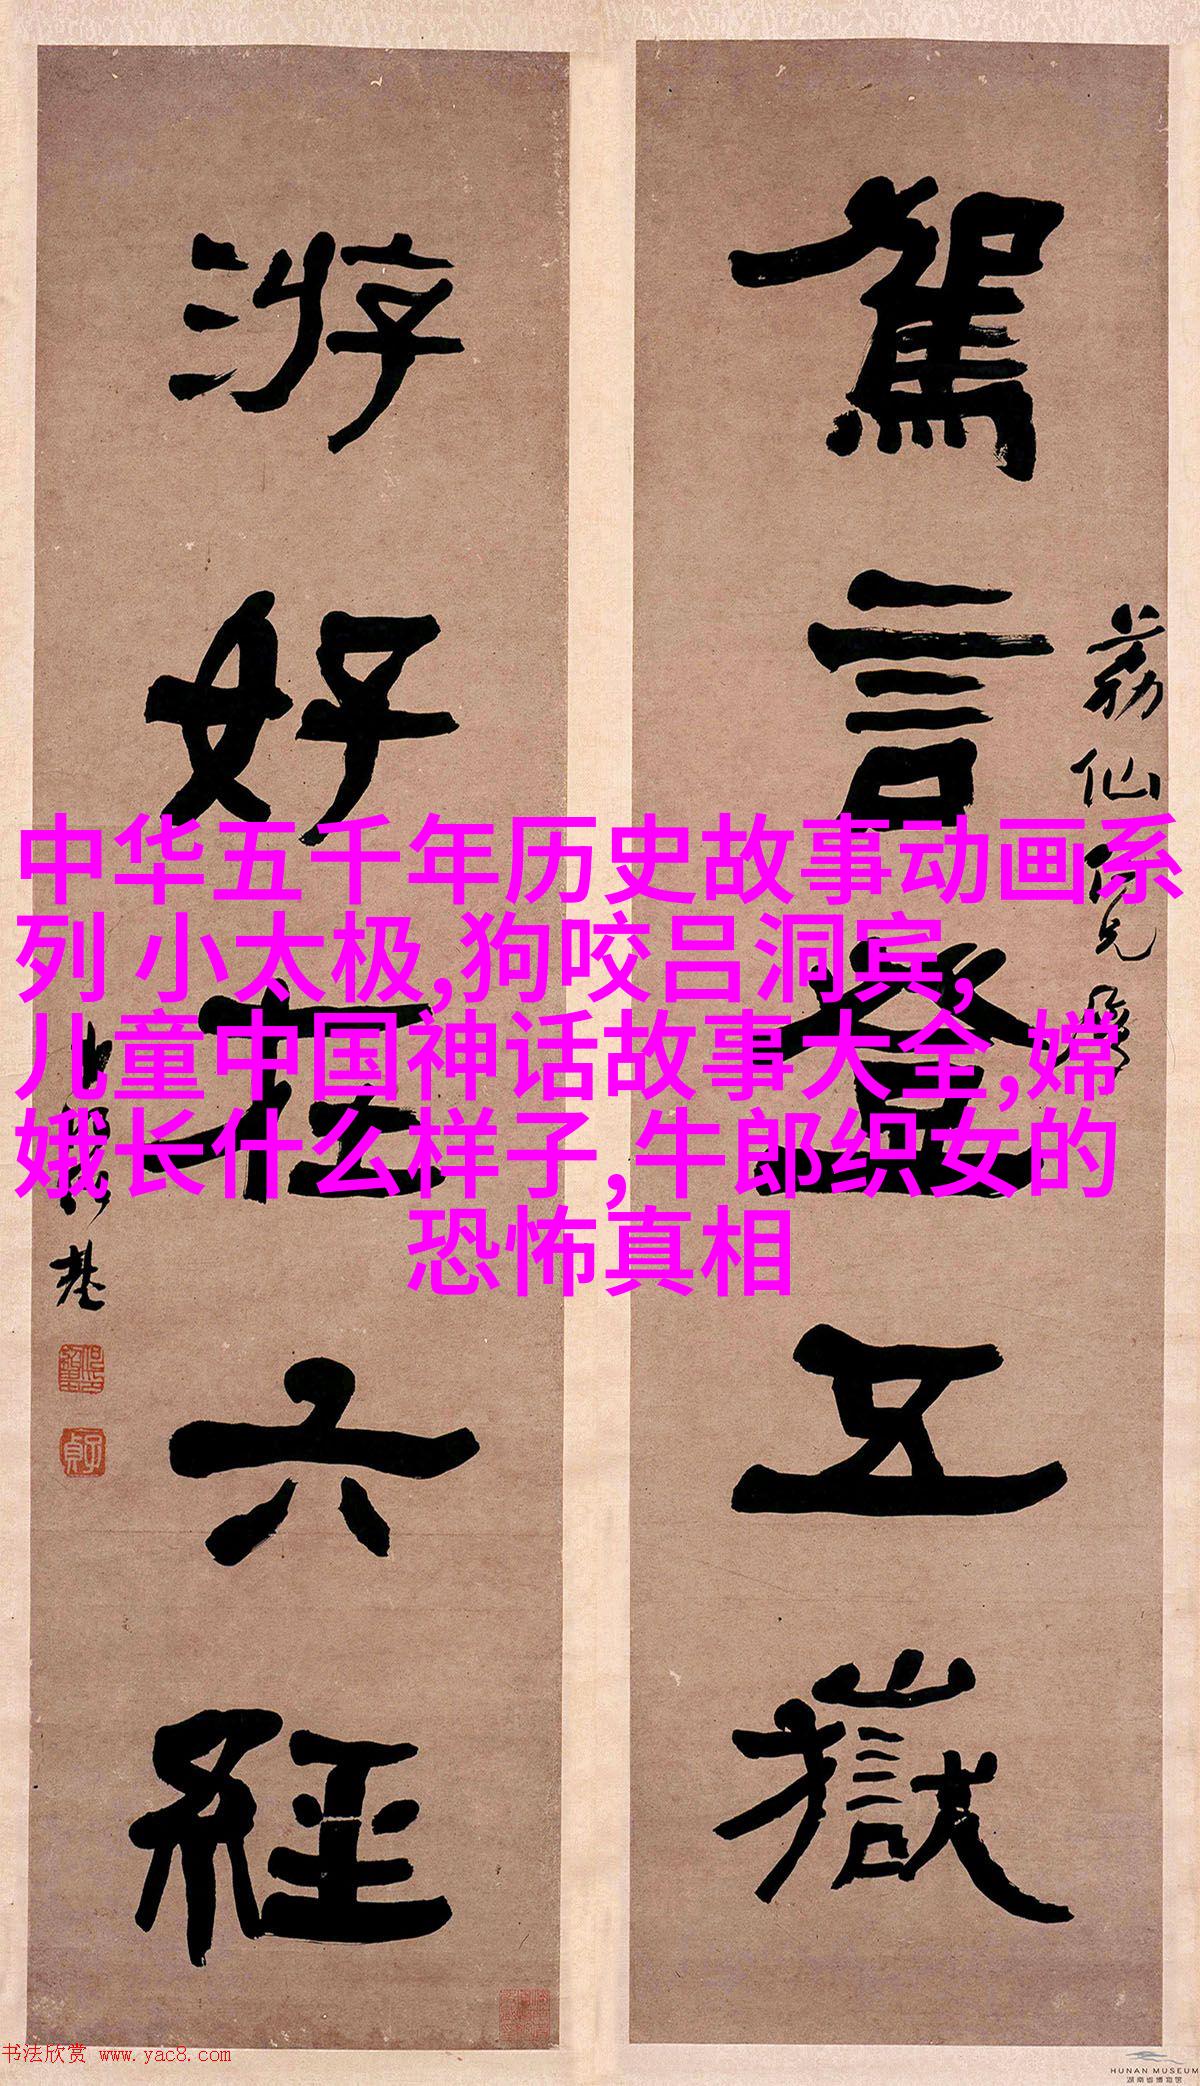 駕言登五嶽
荔仙仁兄屬
游好在六經
何紹基
中华五千年历史故事动画系
列 小太极,狗咬吕洞宾,
儿童中国神话故事大全,嫦
娥长什么样子,牛郎织女的
恐怖真相
书法欣赏 www.yac8.com
HUNAN MUSEUM
湖南省博物馆